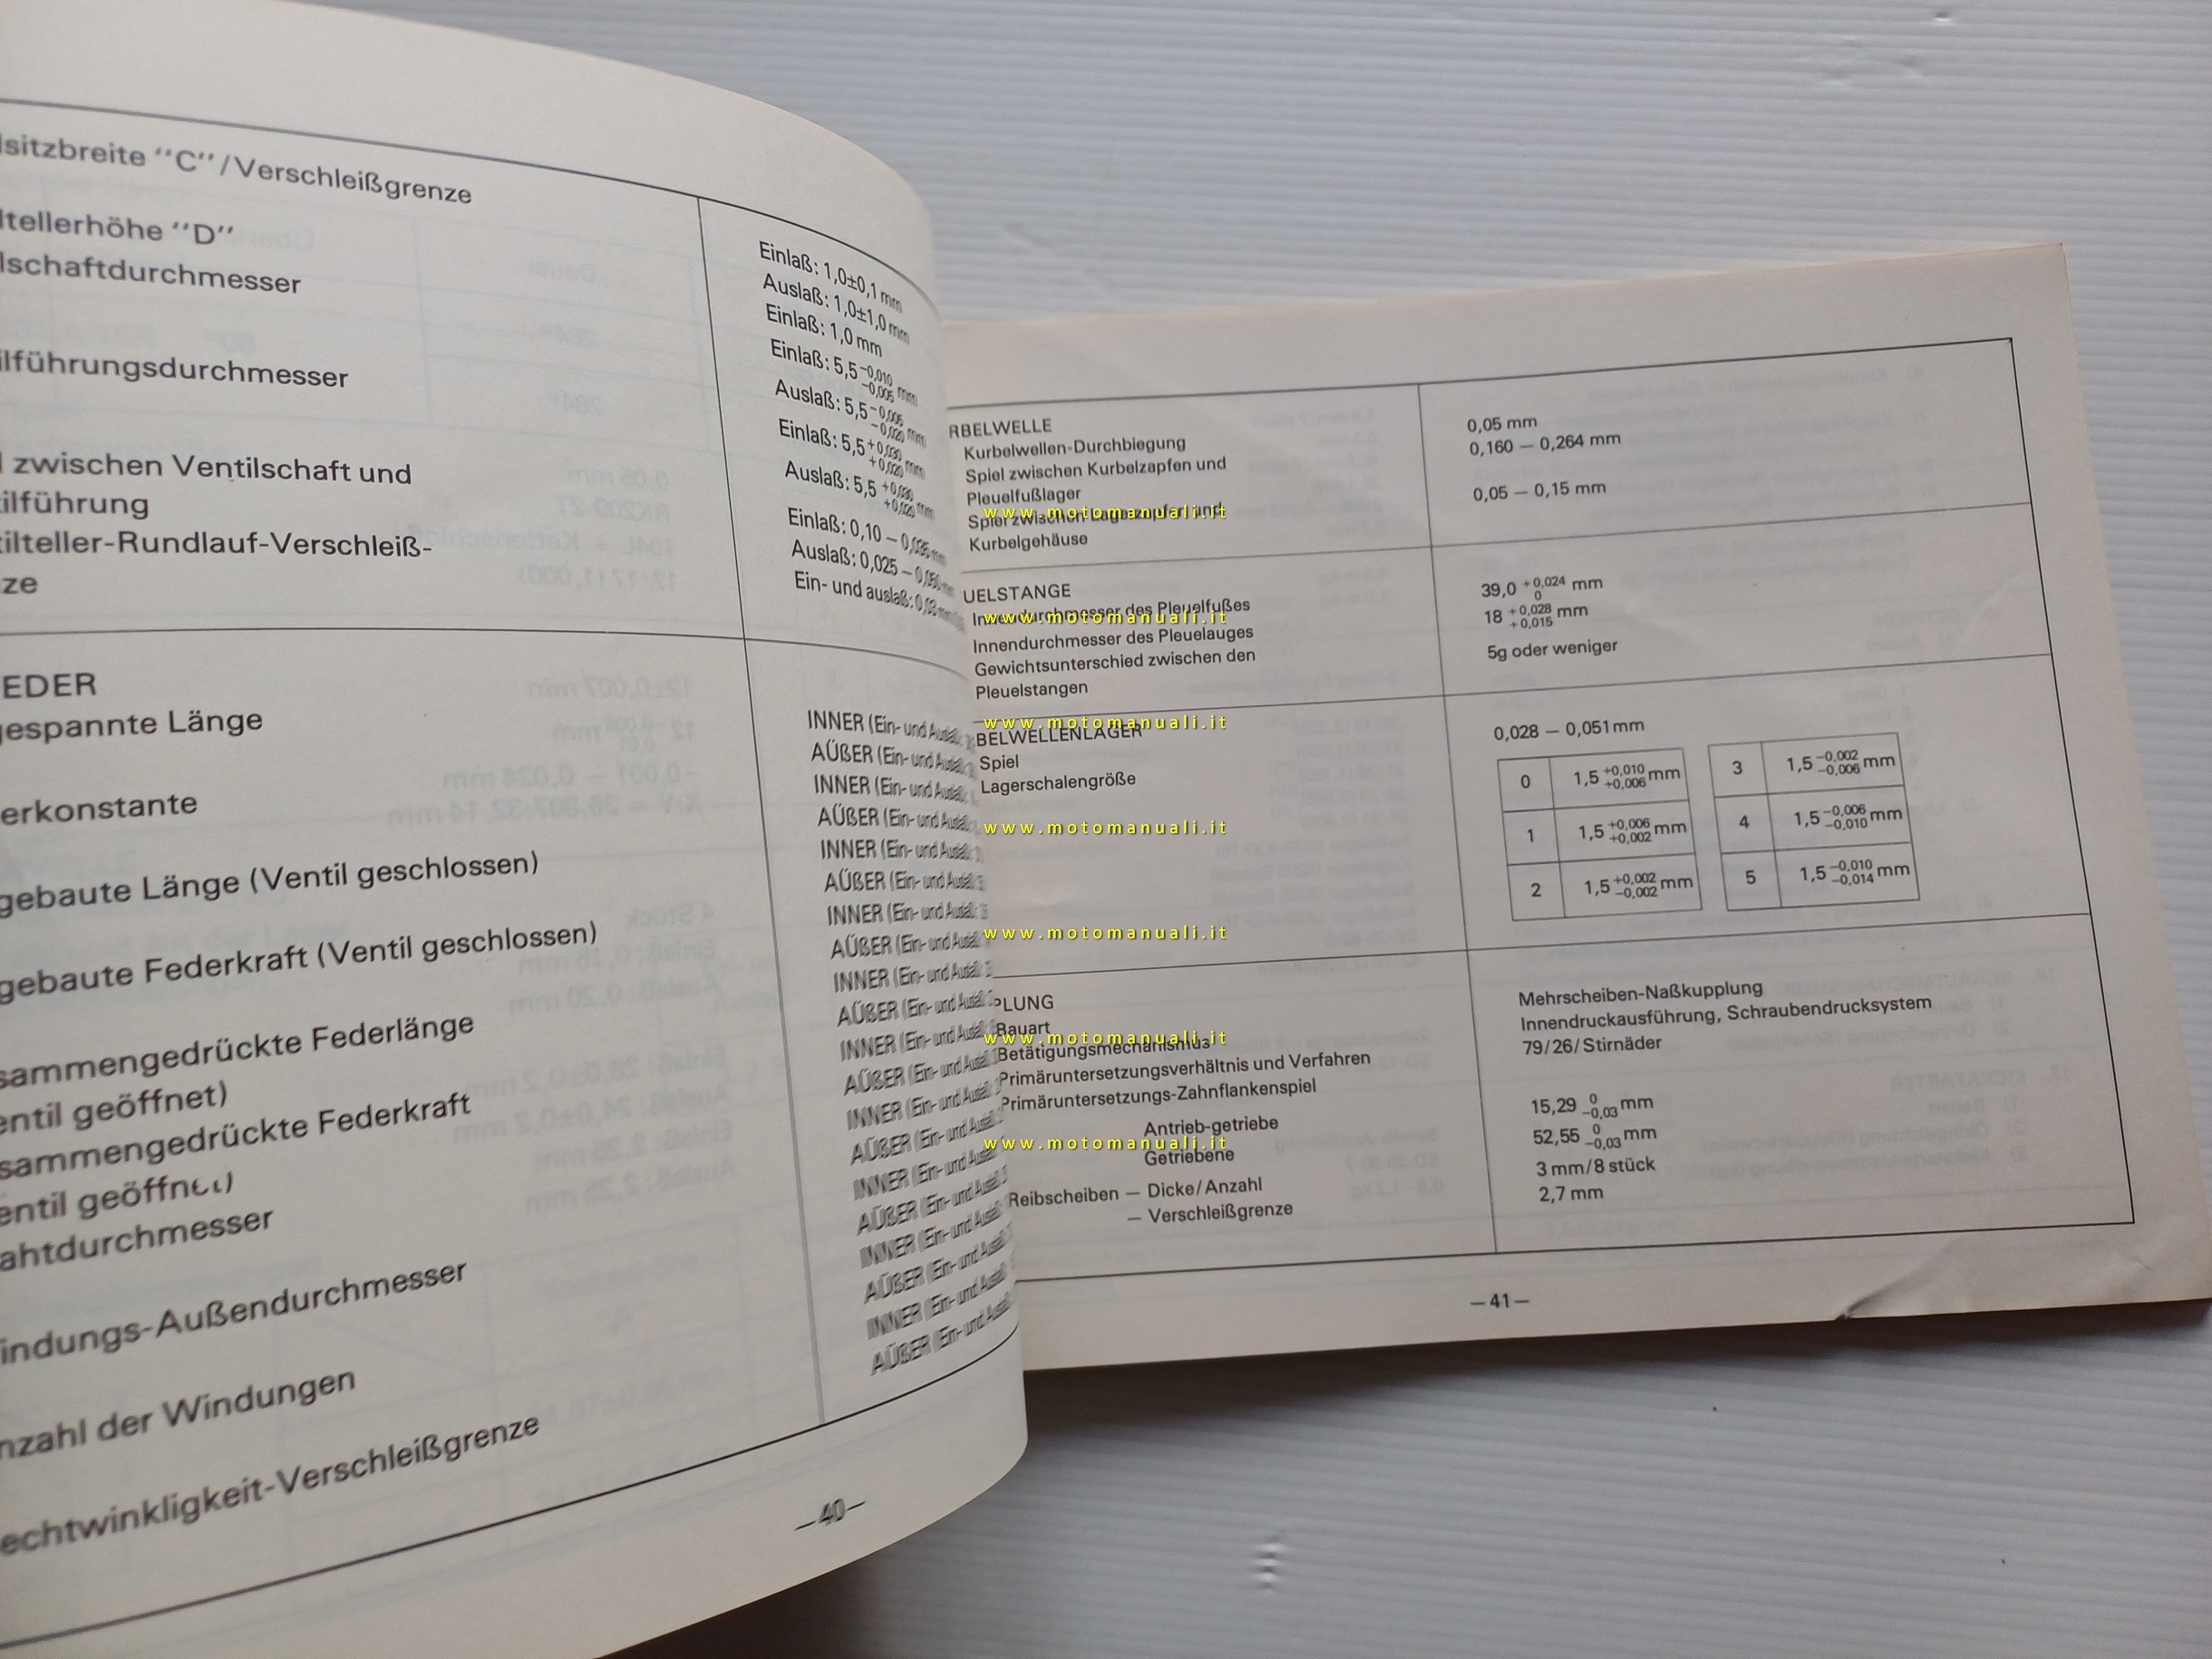 lsitzbreite "C"/Verschleißgrenze
ltellerhöhe "D"
lschaftdurchmesser
ilführungsdurchmesser
zwischen Ventilschaft und
ilführung
ilteller-Rundlauf-Verschleiß-
ze
Einlaß: 1,0±0,1 mm
Auslaß: 1,0±1,0 mm
Einlaß: 1,0 mm
Einlaß: 5,5 -0,010 -0,005 mm
Auslaß: 5,5 -0,005 -0,020 mm
Einlaß: 5,5 +0,030 +0,020 mm
Auslaß: 5,5 +0,030 +0,020 mm
Einlaß: 0,10 —
Auslaß: 0,025 —
Ein- und auslaß:
EDER
gespannte Länge
erkonstante
gebaute Länge (Ventil geschlossen)
gebaute Federkraft (Ventil geschlossen)
sammengedrückte Federlänge
entil geöffnet)
sammengedrückte Federkraft
entil geöffnet)
ahtdurchmesser
indungs-Außendurchmesser
nzahl der Windungen
echtwinkligkeit-Verschleißgrenze
INNER (Ein- und Auslaß:
AÜßER (Ein- und Auslaß:
INNER (Ein- und Auslaß:
AÜßER (Ein- und Auslaß:
INNER (Ein- und Auslaß:
AÜßER (Ein- und Auslaß:
INNER (Ein- und Auslaß:
AÜßER (Ein- und Auslaß:
INNER (Ein- und Auslaß:
AÜßER (Ein- und Auslaß:
INNER (Ein- und Auslaß:
AÜßER (Ein- und Auslaß:
INNER (Ein- und Auslaß:
AÜßER (Ein- und Auslaß:
INNER (Ein- und Auslaß:
AÜßER (Ein- und Auslaß:
INNER (Ein- und Auslaß:
AÜßER (Ein- und Auslaß:
INNER (Ein- und Auslaß:
AÜßER (Ein- und Auslaß:
—40—
RBELWELLE
Kurbelwellen-Durchbiegung
Spiel zwischen Kurbelzapfen und
Pleuelfußlager
www.motomanuali.it
Spiel zwischen Lagerzapfen und
Kurbelgehäuse
0,05 mm
0,160 — 0,264 mm
0,05 — 0,15 mm
UELSTANGE
Innendurchmesser des Pleuelfußes
www.motomanuali.it
Innendurchmesser des Pleuelauges
Gewichtsunterschied zwischen den
Pleuelstangen
39,0 +0,024 0 mm
18 +0,028 +0,015 mm
5g oder weniger
www.motomanuali.it
BELWELLENLAGER
Spiel
Lagerschalengröße
0,028 — 0,051 mm
0 1,5 +0,010 +0,006 mm 3 1,5 -0,002 -0,006 mm
1 1,5 +0,006 +0,002 mm 4 1,5 -0,006 -0,010 mm
2 1,5 +0,002 -0,002 mm 5 1,5 -0,010 -0,014 mm
www.motomanuali.it
www.motomanuali.it
PLUNG
Bauart
www.motomanuali.it
Betätigungsmechanismus
Primäruntersetzungsverhältnis und Verfahren
Primäruntersetzungs-Zahnflankenspiel
Antrieb-getriebe
www.motomanuali.it
Getriebene
Reibscheiben — Dicke/Anzahl
— Verschleißgrenze
Mehrscheiben-Naßkupplung
Innendruckausführung, Schraubendrucksystem
79/26/Stirnäder
15,29 0 -0,03 mm
52,55 0 -0,03 mm
3 mm/8 stück
2,7 mm
—41—